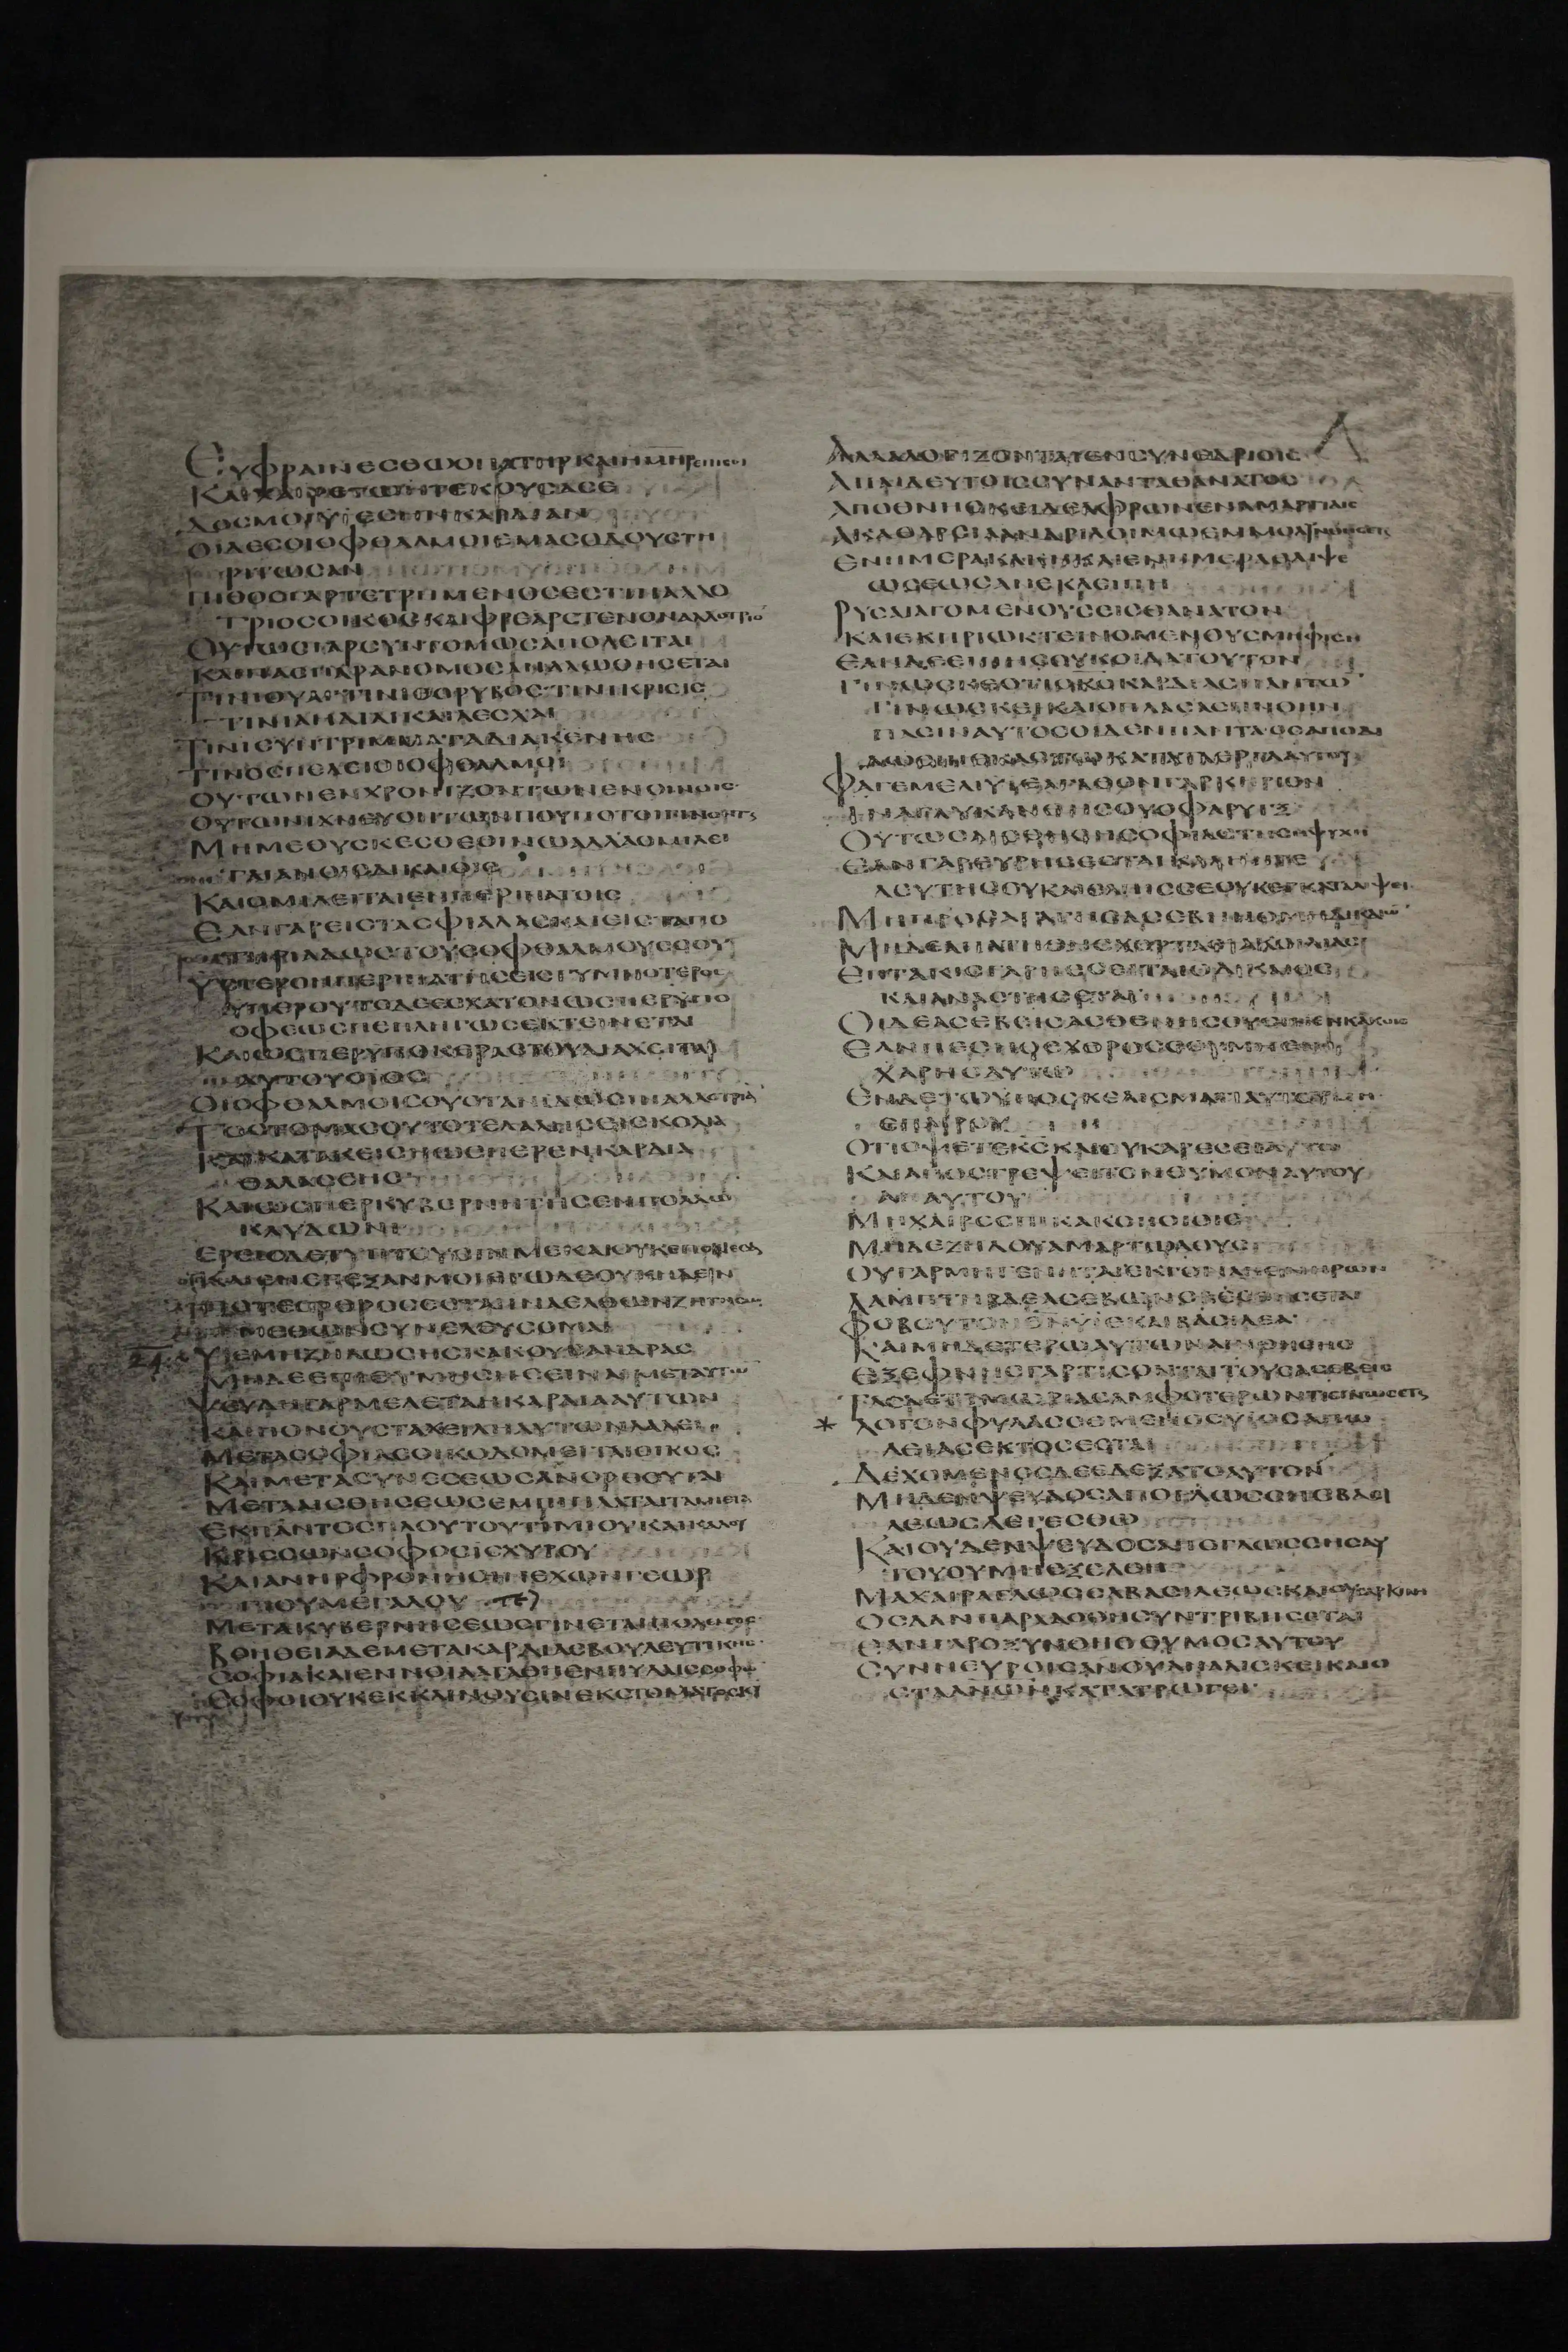 ΕΥΦΡΑΙΝΕΣΘΩΟΠΑΤΗΡΚΑΙΗΜΗΡΕΠΙΣΟΙ
ΚΑΙΧΑΙΡΕΤΩΗΤΕΚΟΥΣΑΣΕ
ΔΟΣΜΟΙΥΙΕΣΗΝΚΑΡΔΙΑΝ
ΟΙΔΕΣΟΙΟΦΘΑΛΜΟΙΕΜΑΣΟΔΟΥΣΤΗ
ΡΙΤΩΣΑΝ
ΠΙΘΟΣΓΑΡΤΕΤΡΗΜΕΝΟΣΕΣΤΙΝΑΛΛΟ
ΤΡΙΟΣΟΙΚΟΣΚΑΙΦΡΕΑΡΣΤΕΝΟΝΑΛΛΟΤΡΙΟ
ΟΥΤΩΣΓΑΡΣΥΝΤΟΜΩΣΑΠΟΛΕΙΤΑΙ
ΚΑΙΠΑΣΠΑΡΑΝΟΜΟΣΑΝΑΛΩΘΗΣΕΤΑΙ
ΤΙΝΙΟΥΑΙΤΙΝΙΘΟΡΥΒΟΣΤΙΝΙΚΡΙΣΙΣ
ΤΙΝΙΑΗΔΙΑΙΚΑΙΛΕΣΧΑΙ
ΤΙΝΙΣΥΝΤΡΙΜΜΑΤΑΔΙΑΚΕΝΗΣ
ΤΙΝΟΣΠΕΛΕΙΟΙΟΙΟΦΘΑΛΜΟΙ
ΟΥΤΩΝΕΝΧΡΟΝΙΖΟΝΤΩΝΕΝΟΙΝΟΙΣ
ΟΥΤΩΝΙΧΝΕΥΟΝΤΩΝΠΟΥΠΟΤΟΙΓΙΝΟΝΤΑΙ
ΜΗΜΕΘΥΣΚΕΣΘΕΟΙΝΩΑΛΛΑΟΜΙΛΕΙ
ΤΑΙΑΝΟΙΣΔΙΚΑΙΟΙΣ
ΚΑΙΟΜΙΛΕΙΤΑΙΕΝΠΕΡΙΠΑΤΟΙΣ
ΕΑΝΓΑΡΕΙΣΤΑΣΦΙΑΛΑΣΚΑΙΕΙΣΤΑΠΟ
ΤΗΡΙΑΔΩΣΤΟΥΣΟΦΘΑΛΜΟΥΣΣΟΥ
ΥΣΤΕΡΟΝΠΕΡΙΠΑΤΗΣΕΙΣΓΥΜΝΟΤΕΡΟΣ
ΥΠΕΡΟΥΤΟΔΕΕΣΧΑΤΟΝΩΣΠΕΡΥΠΟ
ΟΦΕΩΣΠΕΠΛΗΓΩΣΕΚΤΕΙΝΕΤΑΙ
ΚΑΙΩΣΠΕΡΥΠΟΚΕΡΑΣΤΟΥΔΙΑΧΕΙΤΑΙ
ΑΥΤΟΥΟΙΟΣ
ΟΙΟΦΘΑΛΜΟΙΣΟΥΟΤΑΝΙΔΩΣΙΝΑΛΛΟΤΡΙΑ
ΤΟΣΤΟΜΑΣΟΥΤΟΤΕΛΑΛΗΣΕΙΣΚΟΛΙΑ
ΚΑΙΚΑΤΑΚΕΙΣΗΩΣΠΕΡΕΝΚΑΡΔΙΑ
ΘΑΛΑΣΣΗΣ
ΚΑΙΩΣΠΕΡΚΥΒΕΡΝΗΤΗΣΕΝΠΟΛΛΩ
ΚΛΥΔΩΝΙ
ΕΡΕΙΣΔΕΤΥΠΤΟΥΣΙΝΜΕΚΑΙΟΥΚΕΠΟΝΕΣΑ
ΚΑΙΕΝΕΠΕΞΑΝΜΟΙΕΓΩΔΕΟΥΚΗΔΕΙΝ
ΠΟΤΕΟΡΘΡΟΣΕΣΤΑΙΙΝΑΕΛΘΩΝΖΗΤΗΣΩ
ΜΕΘΩΝΣΥΝΕΛΕΥΣΟΜΑΙ
24. ΥΙΕΜΗΖΗΛΩΣΗΣΚΑΚΟΥΣΑΝΔΡΑΣ
ΜΗΔΕΕΠΙΘΥΜΗΣΗΣΕΙΝΑΙΜΕΤΑΥΤΩ
ΨΕΥΔΗΓΑΡΜΕΛΕΤΑΗΚΑΡΔΙΑΑΥΤΩΝ
ΚΑΙΠΟΝΟΥΣΤΑΧΕΙΛΗΑΥΤΩΝΛΑΛΕΙ
ΜΕΤΑΣΟΦΙΑΣΟΙΚΟΔΟΜΕΙΤΑΙΟΙΚΟΣ
ΚΑΙΜΕΤΑΣΥΝΕΣΕΩΣΑΝΟΡΘΟΥΤΑΙ
ΜΕΤΑΙΣΘΗΣΕΩΣΕΜΠΙΠΛΑΤΑΙΤΑΜΕΙΑ
ΕΚΠΑΝΤΟΣΠΛΟΥΤΟΥΤΙΜΙΟΥΚΑΙΚΑΛΟΥ
ΚΡΙΣΣΩΝΣΟΦΟΣΙΣΧΥΡΟΥ
ΚΑΙΑΝΗΡΦΡΟΝΗΣΙΝΕΧΩΝΓΕΩΡ
ΓΙΟΥΜΕΓΑΛΟΥ
ΜΕΤΑΚΥΒΕΡΝΗΣΕΩΣΓΙΝΕΤΑΙΠΟΛΕΜΟΣ
ΒΟΗΘΕΙΑΔΕΜΕΤΑΚΑΡΔΙΑΣΒΟΥΛΕΥΤΙΚΗΣ
ΣΟΦΙΑΚΑΙΕΝΝΟΙΑΑΓΑΘΗΕΝΠΥΛΑΙΣΣΟΦΩ
ΣΟΦΟΙΟΥΚΕΚΚΛΙΝΟΥΣΙΝΕΚΣΤΟΜΑΤΟΣΚΥ
ΑΛΛΑΛΟΓΙΖΟΝΤΑΙΕΝΣΥΝΕΔΡΙΟΙΣ
ΑΠΑΙΔΕΥΤΟΙΣΣΥΝΑΝΤΑΘΑΝΑΤΟΣ
ΑΠΟΘΝΗΣΚΕΙΔΕΑΦΡΩΝΕΝΑΜΑΡΤΙΑΙΣ
ΑΚΑΘΑΡΣΙΑΑΝΔΡΙΛΟΙΜΩΕΜΜΟΛΥΝΘΗΣΕΤΑΙ
ΕΝΗΜΕΡΑΚΑΚΗΚΑΙΕΝΗΜΕΡΑΘΛΙΨΕ
ΩΣΕΩΣΑΝΕΚΛΕΙΠΗ
ΡΥΣΑΙΑΓΟΜΕΝΟΥΣΕΙΣΘΑΝΑΤΟΝ
ΚΑΙΕΚΠΡΙΩΚΤΕΙΝΟΜΕΝΟΥΣΜΗΦΙΣΗ
ΕΑΝΔΕΕΙΠΗΣΟΥΚΟΙΔΑΤΟΥΤΟΝ
ΓΙΝΩΣΚΕΟΤΙΟΚΣΚΑΡΔΙΑΣΠΑΝΤΩ
ΓΙΝΩΣΚΕΙΚΑΙΟΠΛΑΣΑΣΠΝΟΗΝ
ΠΑΣΙΝΑΥΤΟΣΟΙΔΕΝΠΑΝΤΑΟΣΑΠΟΔΙ
ΔΩΣΙΝΕΚΑΣΤΩΚΑΤΑΤΑΕΡΓΑΑΥΤΟΥ
ΦΑΓΕΜΕΛΙΥΙΕΑΓΑΘΟΝΓΑΡΚΗΡΙΟΝ
ΙΝΑΓΛΥΚΑΝΘΗΣΟΥΟΦΑΡΥΓΞ
ΟΥΤΩΣΑΙΣΘΗΘΗΣΟΦΙΑΣΤΗΣΗΨΥΧΗ
ΕΑΝΓΑΡΕΥΡΗΣΕΣΤΑΙΚΑΛΗΗΤΕ
ΛΕΥΤΗΣΟΥΚΑΙΕΛΠΙΣΣΕΟΥΚΕΓΚΑΤΑΛΙΨΕΙ
ΜΗΠΡΟΣΑΓΑΓΗΣΑΣΕΒΗΝΟΜΗΔΙΚΑΙΩ
ΜΗΔΕΑΠΑΤΗΘΗΣΧΟΡΤΑΣΙΑΚΟΙΛΙΑΣ
ΕΠΤΑΚΙΣΓΑΡΠΕΣΕΙΤΑΙΟΔΙΚΑΙΟΣ
ΚΑΙΑΝΑΣΤΗΣΕΤΑΙ
ΟΙΔΕΑΣΕΒΕΙΣΑΣΘΕΝΗΣΟΥΣΙΝΕΝΚΑΚΟΙΣ
ΕΑΝΠΕΣΗΟΕΧΘΡΟΣΣΟΥΜΗΕΠΙ
ΧΑΡΗΣΑΥΤΩ
ΕΝΔΕΤΩΥΠΟΣΚΕΛΙΣΜΑΤΙΑΥΤΟΥΜΗ
ΕΠΑΙΡΟΥ
ΟΤΙΟΨΕΤΕΚΣΚΑΙΟΥΚΑΡΕΣΕΙΑΥΤΩ
ΚΑΙΑΠΟΣΤΡΕΨΕΙΤΟΝΘΥΜΟΝΑΥΤΟΥ
ΑΠΑΥΤΟΥ
ΜΗΧΑΙΡΕΕΠΙΚΑΚΟΠΟΙΟΙΣ
ΜΗΔΕΖΗΛΟΥΑΜΑΡΤΩΛΟΥΣ
ΟΥΓΑΡΜΗΓΕΝΗΤΑΙΕΚΓΟΝΑΠΟΝΗΡΩΝ
ΛΑΜΠΤΗΡΔΕΑΣΕΒΩΝΣΒΕΣΘΗΣΕΤΑΙ
ΦΟΒΟΥΤΟΝΘΝΥΙΕΚΑΙΒΑΣΙΛΕΑ
ΚΑΙΜΗΔΕΤΕΡΩΑΥΤΩΝΑΠΙΘΗΣΗΣ
ΕΞΕΦΝΗΣΓΑΡΤΙΣΟΝΤΑΙΤΟΥΣΑΣΕΒΕΙΣ
ΤΑΣΔΕΤΙΜΩΡΙΑΣΑΜΦΟΤΕΡΩΝΤΙΣΓΝΩΣΕΤΑΙ
* ΛΟΓΟΝΦΥΛΑΣΣΟΜΕΝΟΣΥΙΟΣΑΠΩ
ΛΕΙΑΣΕΚΤΟΣΕΣΤΑΙ
ΔΕΧΟΜΕΝΟΣΔΕΕΔΕΞΑΤΟΑΥΤΟΝ
ΜΗΔΕΝΨΕΥΔΟΣΑΠΟΓΛΩΣΣΗΣΒΑΣΙ
ΛΕΩΣΛΕΓΕΣΘΩ
ΚΑΙΟΥΔΕΝΨΕΥΔΟΣΑΠΟΓΛΩΣΣΗΣΑΥ
ΤΟΥΟΥΜΗΕΞΕΛΘΗ
ΜΑΧΑΙΡΑΓΛΩΣΣΑΒΑΣΙΛΕΩΣΚΑΙΟΥΣΑΡΚΙΝΗ
ΟΣΔΑΝΠΑΡΑΔΟΘΗΣΥΝΤΡΙΒΗΣΕΤΑΙ
ΕΑΝΓΑΡΟΞΥΝΘΗΟΘΥΜΟΣΑΥΤΟΥ
ΣΥΝΝΕΥΡΟΙΣΑΝΟΥΣΑΝΑΛΙΣΚΕΙΚΑΙΟ
ΣΤΑΑΝΩΝΚΑΤΑΤΡΩΓΕΙ